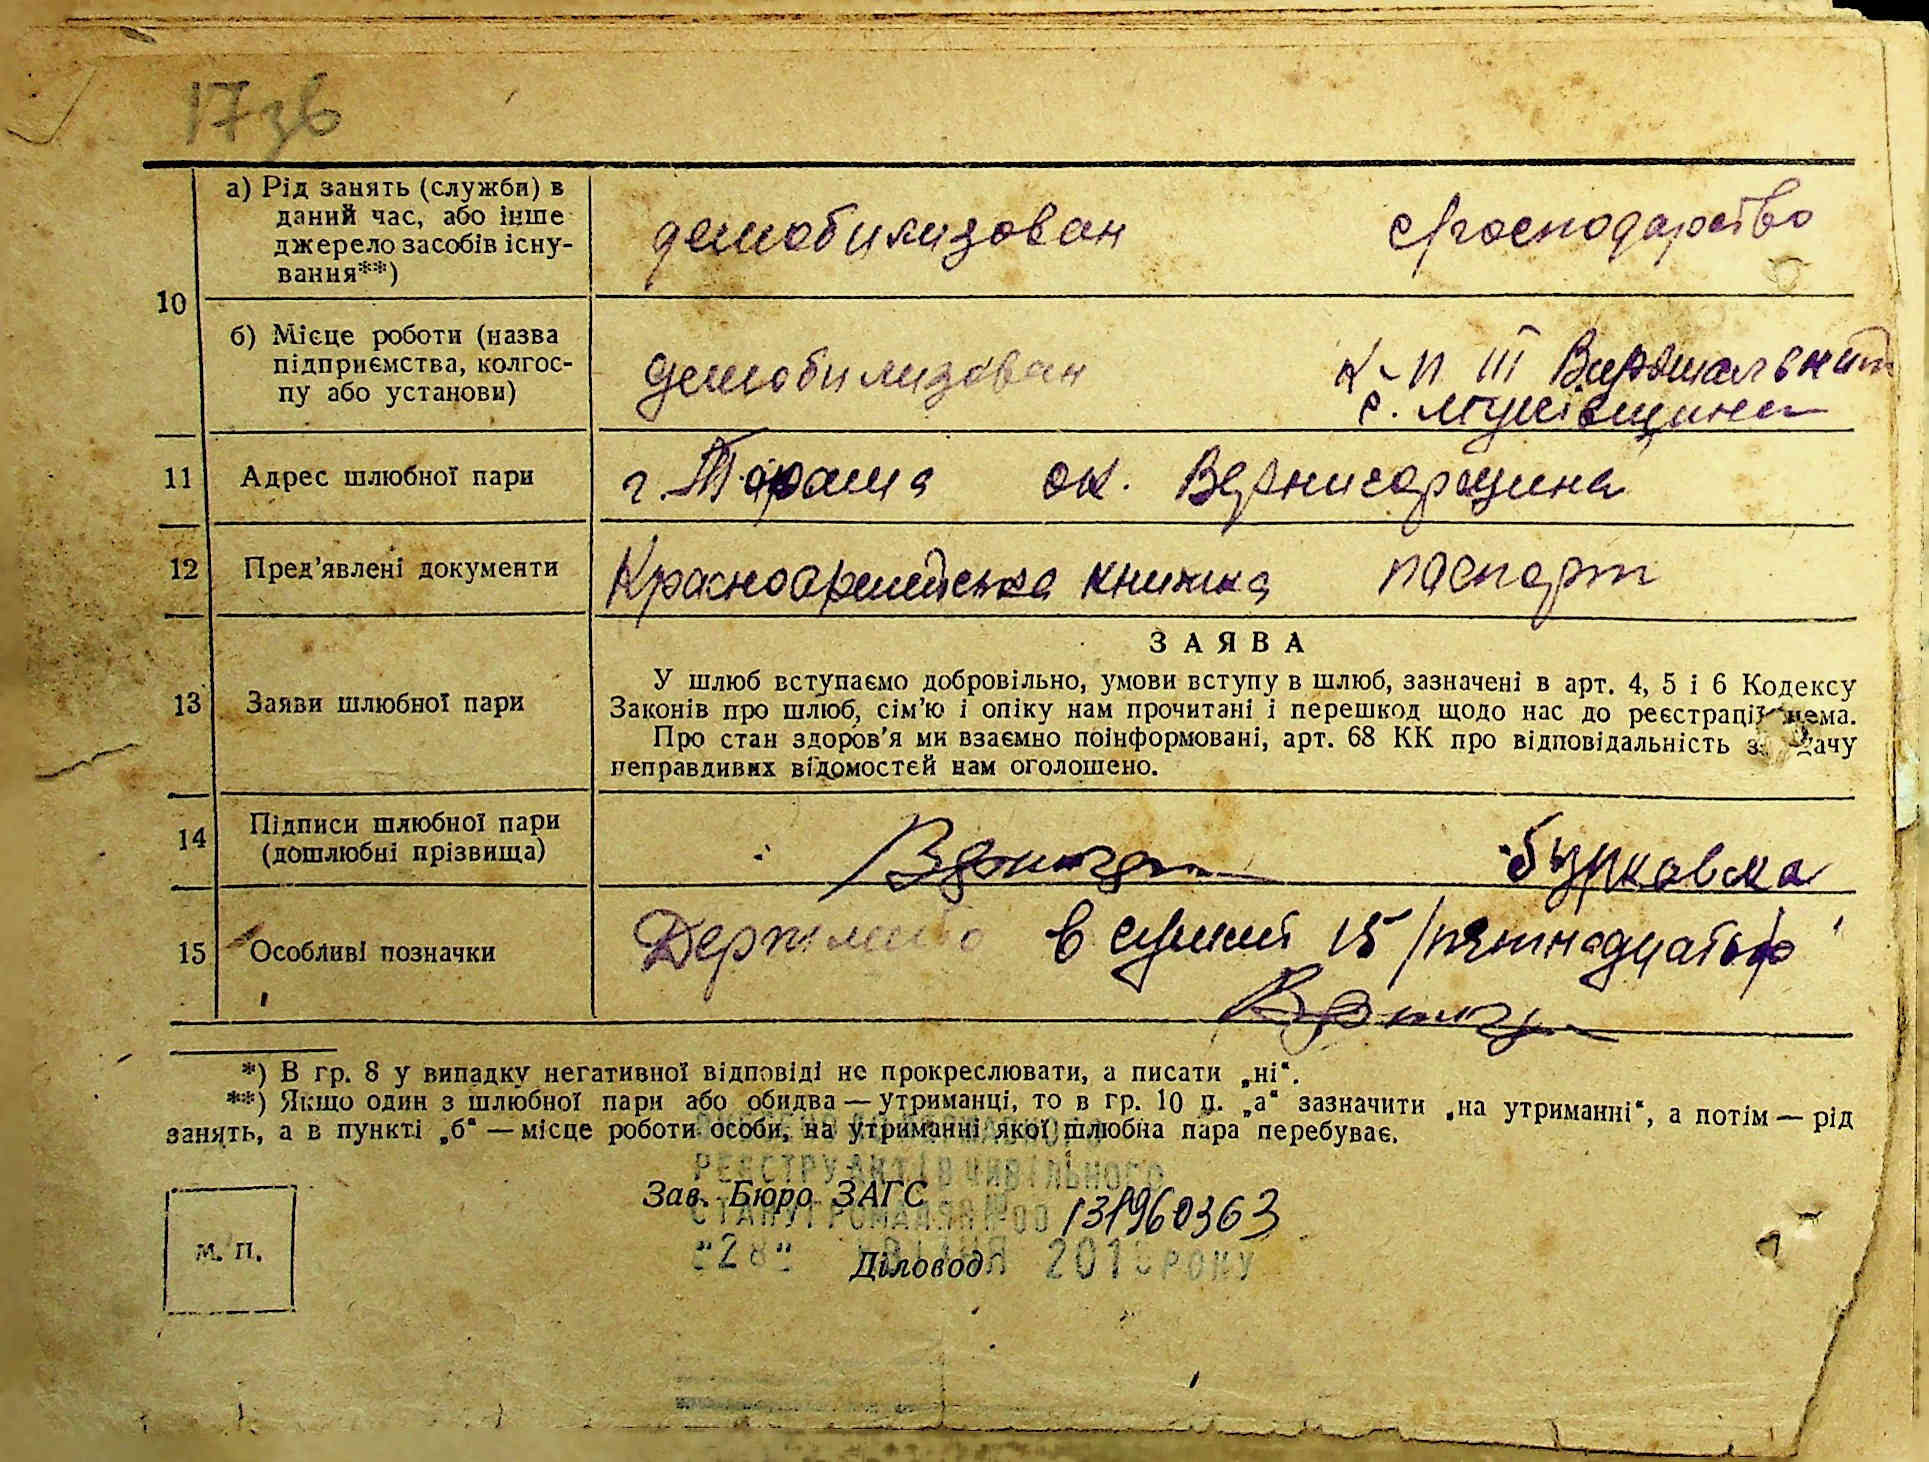 17зв
а) Рід занять (служби) в
даний час, або інше
джерело засобів існу-
вання**)
демобилизован с/господарство
10
б) Місце роботи (назва
підприємства, колгос-
пу або установи)
демобилизован к-п III Вирішальний
с.
11 Адрес шлюбної пари г. Тараща ок.
12 Пред'явлені документи Красноармейська книжка паспорт
ЗАЯВА
13 Заяви шлюбної пари
У шлюб вступаємо добровільно, умови вступу в шлюб, зазначені в арт. 4, 5 і 6 Кодексу
Законів про шлюб, сім'ю і опіку нам прочитані і перешкод щодо нас до реєстрації нема.
Про стан здоров'я ми взаємно поінформовані, арт. 68 КК про відповідальність за дачу
неправдивих відомостей нам оголошено.
14 Підписи шлюбної пари
(дошлюбні прізвища)
Бурковска
15 Особливі позначки
Держмито в сумми 15 /пятнадцать/
*) В гр. 8 у випадку негативної відповіді не прокреслювати, а писати „ні“.
**) Якщо один з шлюбної пари або обидва — утриманці, то в гр. 10 п. „а“ зазначити „на утриманні“, а потім — рід
занять, а в пункті „б“ — місце роботи особи, на утриманні якої шлюбна пара перебуває.
РЕЄСТРУ АКТІВ ЦИВІЛЬНОГО
Зав. Бюро ЗАГС
СТАНУ ГРОМАДЯН № 00 131960363
М. П.
"28" КВІТНЯ РОКУ
Діловод